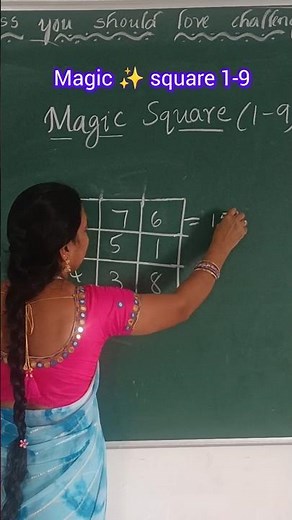 you should love challeng
Magic ✨ square 1-9
Magic Square (1-9
7 6 = 1
5 1
4 3 8